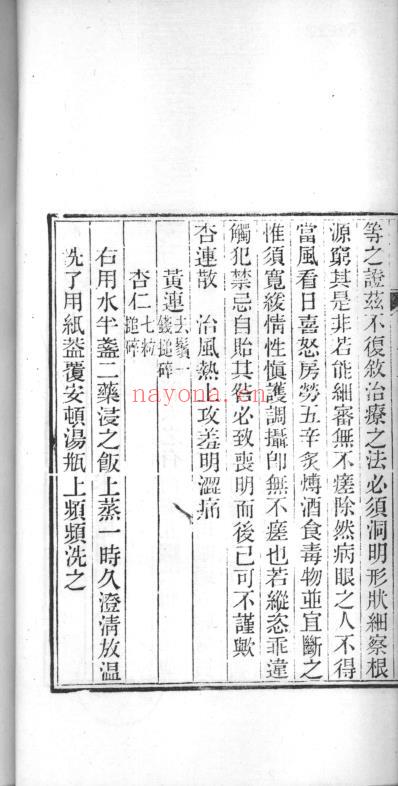 等之證茲不復敘治療之法必須洞明形狀細察根
源窮其是非若能細審無不瘥除然病眼之人不得
當風看日喜怒房勞五辛炙煿酒食毒物並宜斷之
惟須寬緩情性慎護調攝卽無不瘥也若縱恣乖違
觸犯禁忌自貽其咎必致喪明而後已可不謹歟
杏連散　治風熱上攻羞明澀痛
黃連去鬚一錢搥碎
杏仁七粒搥碎
右用水半盞二藥浸之飯上蒸一時久澄清放温
洗了用紙葢覆安頓湯瓶上頻頻洗之
nayona.cn